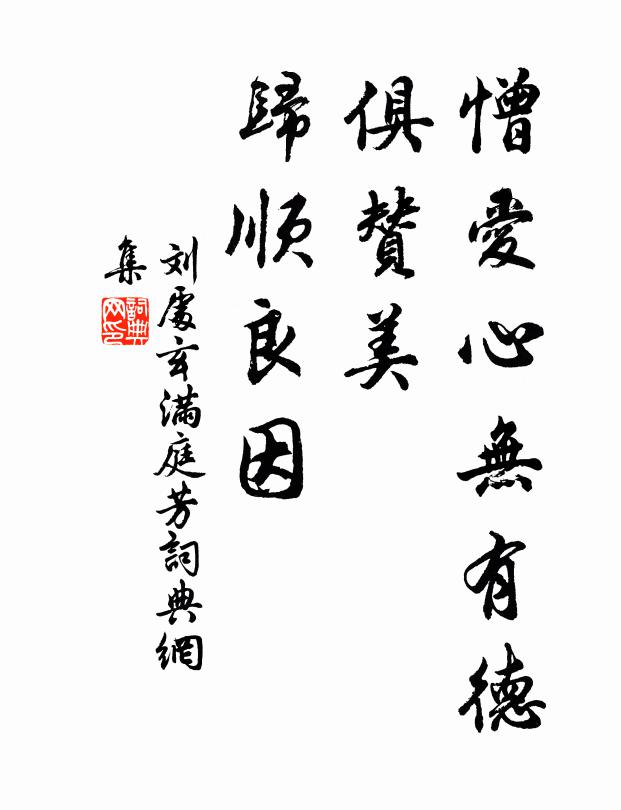 憎愛心無有德
俱贊美
歸順良因
刘處玄滿庭芳詞典網
集
詞典
网印